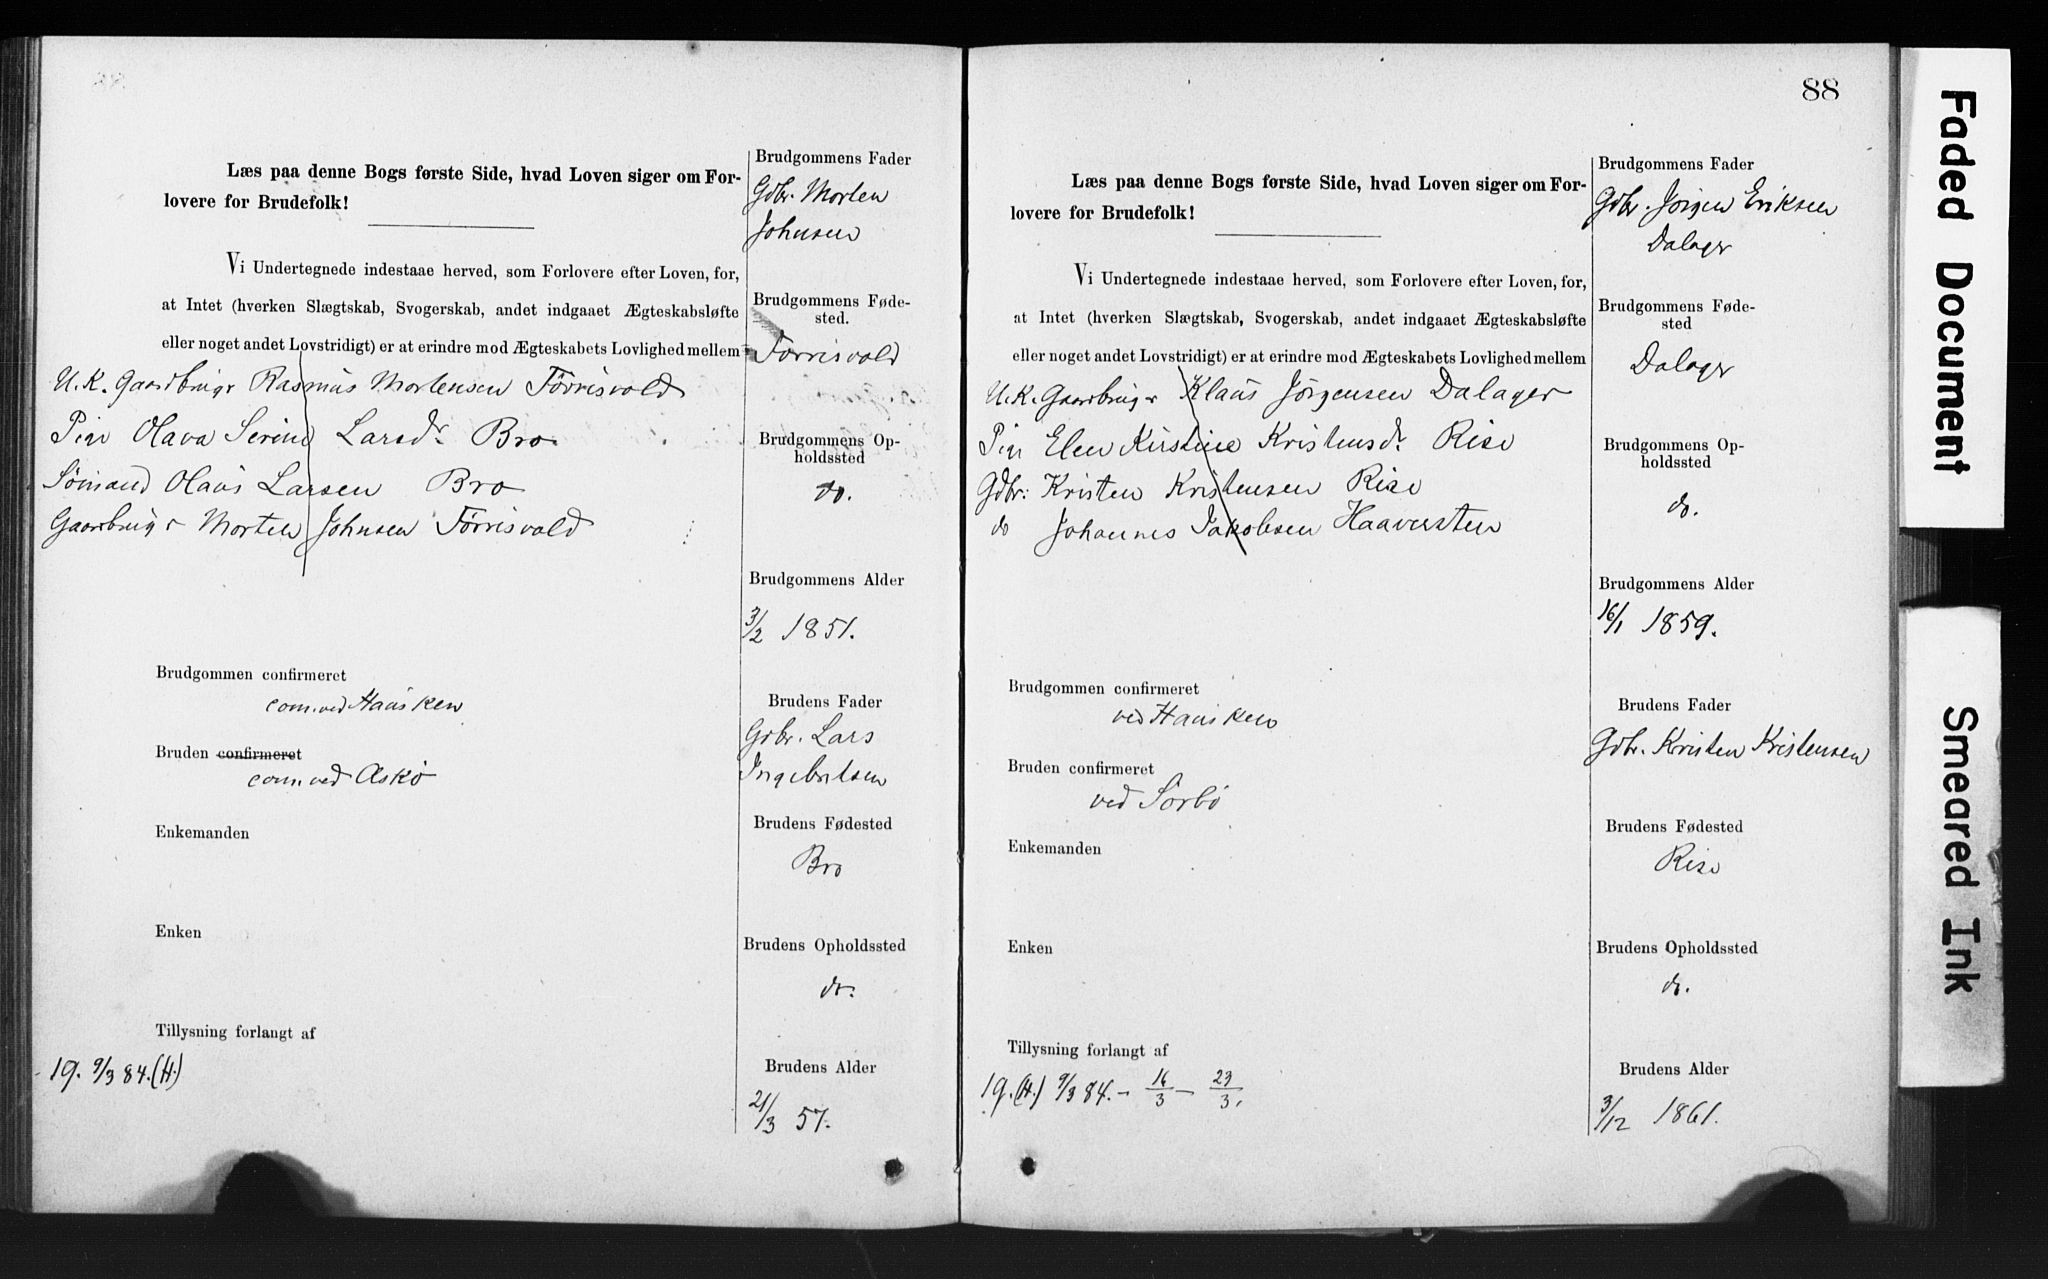 Læs paa denne Bogs første Side, hvad Loven siger om For-
lovere for Brudefolk!
Vi Undertegnede indestaae herved, som Forlovere efter Loven, for,
at Intet (hverken Slægtskab, Svogerskab, andet indgaaet Ægteskabsløfte
eller noget andet Lovstridigt) er at erindre mod Ægteskabets Lovlighed mellem
U. K. Gaardbrugr Rasmus Mortensen Førrisvold
Pige Olava Serine Larsdr. Bro
Sömand Olaus Larsen Bro
Gaardbrugr Morten Johnsen Førrisvold
Brudgommen confirmeret
com. ved Hausken
Bruden confirmeret
com. ved Askö
Enkemanden
Enken
Tillysning forlangt af
19. 9/3 84. (H.)
Brudgommens Fader
Gdbr. Morten
Johnsen
Brudgommens Føde-
sted.
Førrisvold
Brudgommens Op-
holdssted
do.
Brudgommens Alder
3/2 1851.
Brudens Fader
Gdbr. Lars
Ingebritsen
Brudens Fødested
Bro
Brudens Opholdssted
do.
Brudens Alder
21/3 57.
88
Læs paa denne Bogs første Side, hvad Loven siger om For-
lovere for Brudefolk!
Vi Undertegnede indestaae herved, som Forlovere efter Loven, for,
at Intet (hverken Slægtskab, Svogerskab, andet indgaaet Ægteskabsløfte
eller noget andet Lovstridigt) er at erindre mod Ægteskabets Lovlighed mellem
U. K. Gaardbrugr Klaus Jørgensen Dalager
Pige Elen Kirstine Kristensdr. Rise
Gdbr. Kristen Kristensen Rise
do Johannes Jakobsen Haaversten
Brudgommen confirmeret
ved Hausken
Bruden confirmeret
ved Sörbö
Enkemanden
Enken
Tillysning forlangt af
19. (H.) 9/3 84. - 16/3 - 23/3.
Brudgommens Fader
Gdbr. Jørgen Eriksen
Dalager
Brudgommens Føde-
sted
Dalager
Brudgommens Op-
holdssted
do.
Brudgommens Alder
16/1 1859.
Brudens Fader
Gdbr. Kristen Kristensen
Brudens Fødested
Rise
Brudens Opholdssted
do.
Brudens Alder
3/12 1861.
Faded Document
Smeared Ink